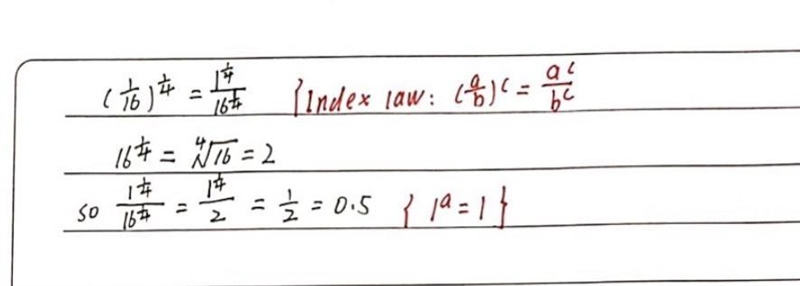 (1/16)^{1/4} = 1^{1/4}/16^{1/4} {Index law: (a/b)^c = a^c/b^c
16^{1/4} = ⁴√16 = 2
so 1^{1/4}/16^{1/4} = 1^{1/4}/2 = 1/2 = 0.5 { 1^a = 1 }